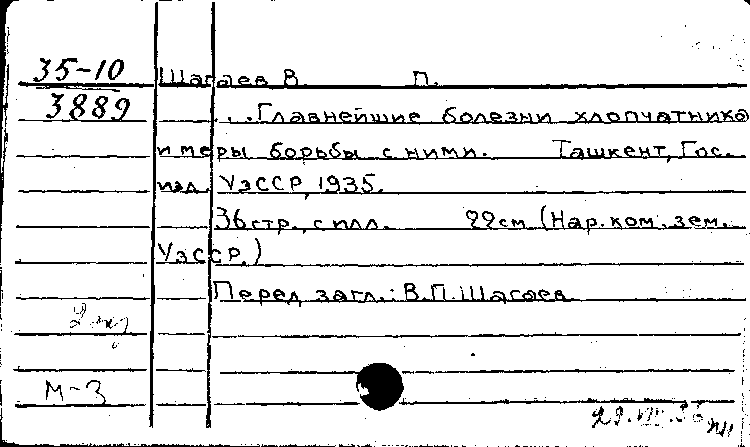 35-10 Шагаев В. П.
3889 ...Главнейшие болезни хлопчатника
и меры борьбы с ними. Ташкент, Гос.
изд. УзССР, 1935.
36 стр., с илл. 22 см (Нар. ком. зем.
УзССР.)
Перед загл.: В.П. Шагаев
2 экз
М-3
29.VII.36